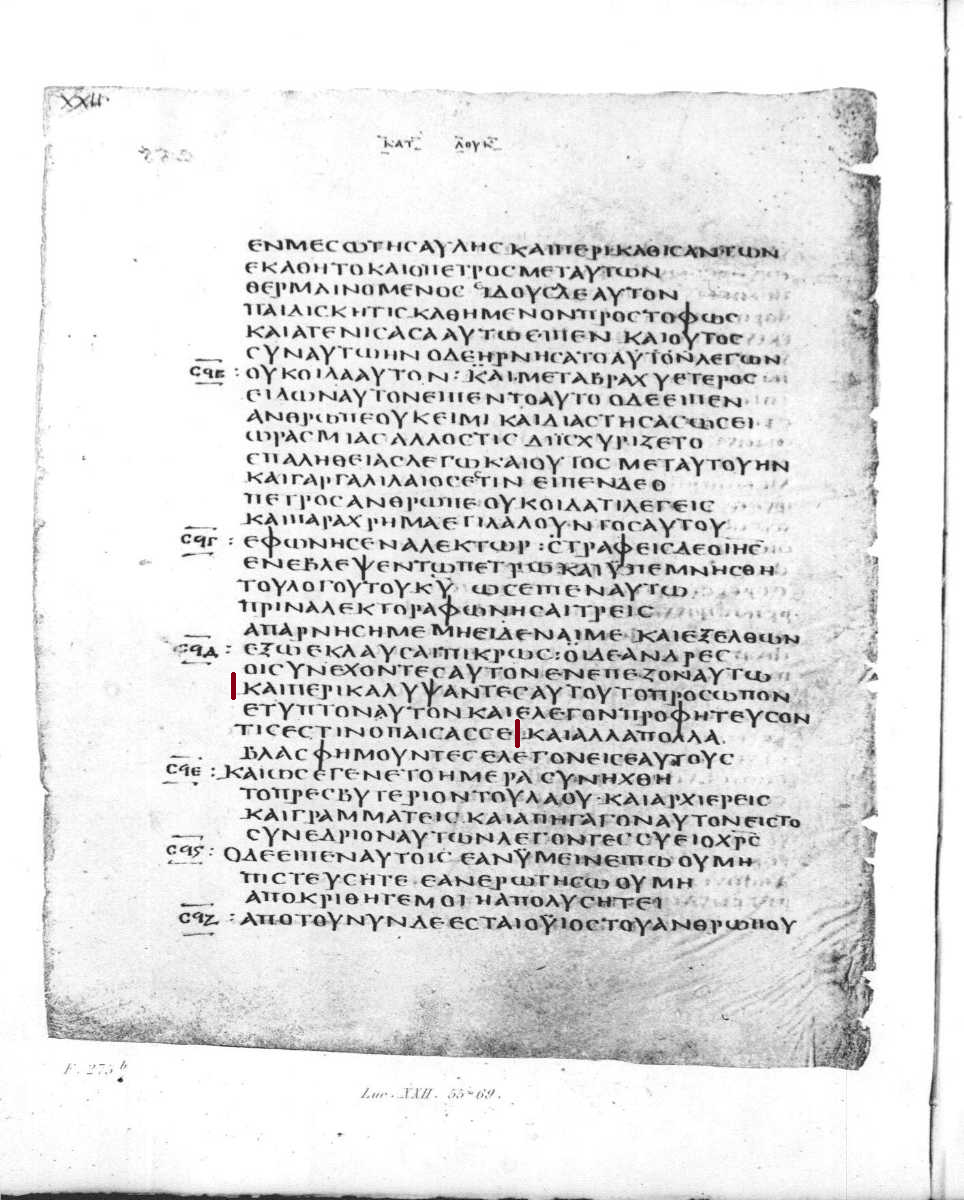 XXII
ΚΑΤ ΛΟΥΚ
ΕΝΜΕСωΤΗСΑΥΛΗС ΚΑΙΠΕΡΙΚΑΘΙСΑΝΤωΝ
ΕΚΑΘΗΤΟΚΑΙΟΠΕΤΡΟСΜΕΤΑΥΤωΝ
ΘΕΡΜΑΙΝΟΜΕΝΟС ΙΔΟΥСΔΕΑΥΤΟΝ
ΠΑΙΔΙСΚΗΤΙС ΚΑΘΗΜΕΝΟΝΠΡΟСΤΟΦωС
ΚΑΙΑΤΕΝΙСΑСΑΑΥΤωΕΙΠΕΝ ΚΑΙΟΥΤΟС
СΥΝΑΥΤωΗΝ ΟΔΕΗΡΝΗСΑΤΟΑΥΤΟΝΛΕΓωΝ
СϥΒ : ΟΥΚΟΙΔΑΑΥΤΟΝ : ΚΑΙΜΕΤΑΒΡΑΧΥΕΤΕΡΟС
ΕΙΔωΝΑΥΤΟΝΕΙΠΕΝΤΟΑΥΤΟ ΟΔΕΕΙΠΕΝ
ΑΝΘΡωΠΕΟΥΚΕΙΜΙ ΚΑΙΔΙΑСΤΗСΑСωСΕΙ
ωΡΑСΜΙΑСΑΛΛΟСΤΙС ΔΙΙСΧΥΡΙΖΕΤΟ
ΕΠΑΛΗΘΕΙΑСΛΕΓωΚΑΙΟΥΤΟС ΜΕΤΑΥΤΟΥΗΝ
ΚΑΙΓΑΡΓΑΛΙΛΑΙΟСΕСΤΙΝ ΕΙΠΕΝΔΕΟ
ΠΕΤΡΟСΑΝΘΡωΠΕ ΟΥΚΟΙΔΑΤΙΛΕΓΕΙС
ΚΑΙΠΑΡΑΧΡΗΜΑΕΤΙΛΑΛΟΥΝΤΟСΑΥΤΟΥ
СϥΓ : ΕΦωΝΗСΕΝΑΛΕΚΤωΡ : СΤΡΑΦΕΙСΔΕΟΙΗС
ΕΝΕΒΛΕΨΕΝΤωΠΕΤΡω ΚΑΙΥΠΕΜΝΗСΘΗ
ΤΟΥΛΟΓΟΥΤΟΥΚΥ ωСΕΙΠΕΝΑΥΤω
ΠΡΙΝΑΛΕΚΤΟΡΑΦωΝΗСΑΙΤΡΕΙС
ΑΠΑΡΝΗСΗΜΕΜΗΕΙΔΕΝΑΙΜΕ ΚΑΙΕΞΕΛΘωΝ
СϥΔ : ΕΞωΕΚΛΑΥСΑΙΠΙΚΡωС : ΟΙΔΕΑΝΔΡΕС
ΟΙСΥΝΕΧΟΝΤΕСΑΥΤΟΝΕΝΕΠΕΖΟΝΑΥΤω
ΚΑΙΠΕΡΙΚΑΛΥΨΑΝΤΕСΑΥΤΟΥΤΟΠΡΟСωΠΟΝ
ΕΤΥΠΤΟΝΑΥΤΟΝ ΚΑΙΕΛΕΓΟΝΠΡΟΦΗΤΕΥСΟΝ
ΤΙСΕСΤΙΝΟΠΑΙСΑССΕ ΚΑΙΑΛΛΑΠΟΛΛΑ
ΒΛΑСΦΗΜΟΥΝΤΕСΕΛΕΓΟΝΕΙСΕΑΥΤΟΥС
СϥΕ : ΚΑΙωСΕΓΕΝΕΤΟΗΜΕΡΑ СΥΝΗΧΘΗ
ΤΟΠΡΕСΒΥΤΕΡΙΟΝΤΟΥΛΑΟΥ ΚΑΙΑΡΧΙΕΡΕΙС
ΚΑΙΓΡΑΜΜΑΤΕΙС ΚΑΙΑΠΗΓΑΓΟΝΑΥΤΟΝΕΙСΤΟ
СΥΝΕΔΡΙΟΝΑΥΤωΝΛΕΓΟΝΤΕС СΥΕΙΟΧΡС
Сϥϛ : ΟΔΕΕΙΠΕΝΑΥΤΟΙС ΕΑΝΫΜΕΙΝΕΙΠω ΟΥΜΗ
ΠΙСΤΕΥСΗΤΕ ΕΑΝΕΡωΤΗСω ΟΥΜΗ
ΑΠΟΚΡΙΘΗΤΕΜΟΙ ΗΑΠΟΛΥСΗΤΕΙ
СϥΖ : ΑΠΟΤΟΥΝΥΝΔΕΕСΤΑΙΟΫΙΟСΤΟΥΑΝΘΡωΠΟΥ
F. 275 b
Luc. XXII. 55-69.